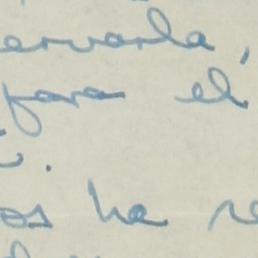 ervarla,
para el
os ha re